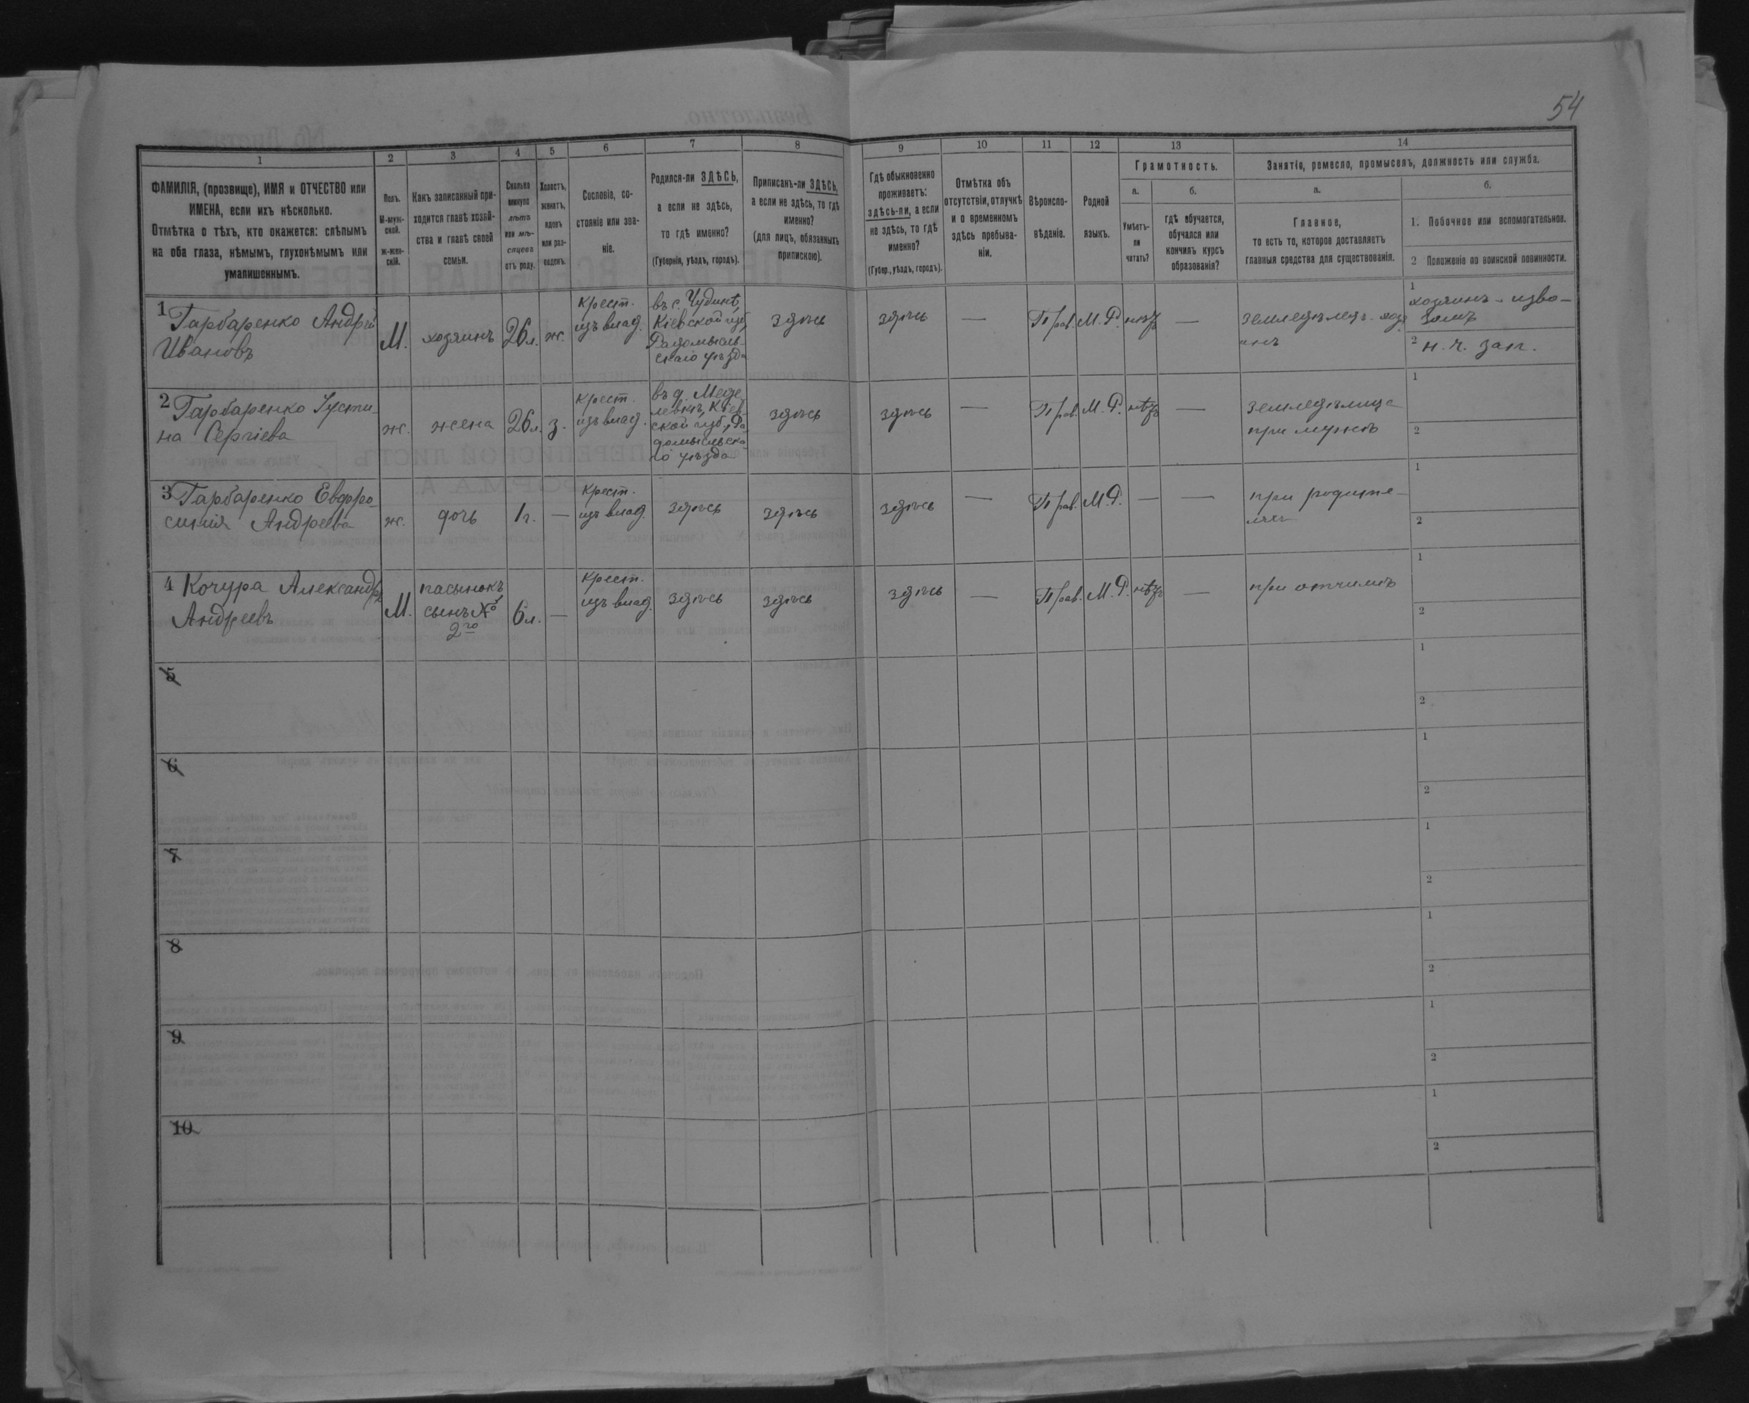 54
1
2
3
4
5
6
7
8
9
10
11
12
13
14
ФАМИЛІЯ, (прозвище), ИМЯ и ОТЧЕСТВО или
ИМЕНА, если ихъ нѣсколько.
Отмѣтка о тѣхъ, кто окажется: слѣпымъ
на оба глаза, нѣмымъ, глухонѣмымъ или
умалишеннымъ.
Полъ.
М-муж-
ской.
ж-жен-
скій.
Какъ записанный при-
ходится главѣ хозяй-
ства и главѣ своей
семьи.
Сколько
минуло
лѣтъ
или мѣ-
сяцевъ
отъ роду.
Холостъ,
женатъ,
вдовъ
или раз-
веденъ.
Сословіе, со-
стояніе или зва-
ніе.
Родился-ли ЗДѢСЬ,
а если не здѣсь,
то гдѣ именно?
(Губернія, уѣздъ, городъ).
Приписанъ-ли ЗДѢСЬ,
а если не здѣсь, то гдѣ
именно?
(для лицъ, обязанныхъ
припискою).
Гдѣ обыкновенно
проживаетъ:
здѣсь-ли, а если
не здѣсь, то гдѣ
именно?
(Губер., уѣздъ, городъ).
Отмѣтка объ
отсутствіи, отлучкѣ
и о временномъ
здѣсь пребыва-
ніи.
Вѣроиспо-
вѣданіе.
Родной
языкъ.
Грамотность.
а.
Умѣетъ-
ли
читать?
б.
гдѣ обучается,
обучался или
кончилъ курсъ
образованія?
Занятіе, ремесло, промыселъ, должность или служба.
а.
Главное,
то есть то, которое доставляетъ
главныя средства для существованія.
б.
1. Побочное или вспомогательное.
2 Положеніе по воинской повинности.
1 Гарбаренко Андрей
Ивановъ
М.
хозяинъ
26 л.
ж.
крест.
изъ влад.
въ с. Чудинѣ,
Кіевской губ.,
Радомысль-
скаго уѣзда
здѣсь
здѣсь
—
Прав.
М. Р.
нѣтъ
—
земледѣлецъ хозя
инъ
1
хозяинъ - изво-
зомъ
2 н. ч. зап.
2 Гарбаренко Іусти-
на Сергіева
ж.
жена
26 л.
з.
крест.
изъ влад.
въ д. Меде
левкѣ, Кіев-
ской губ., Ра
домысльска-
го уѣзда
здѣсь
здѣсь
—
Прав.
М. Р.
нѣтъ
—
земледѣлица
при мужѣ
1
2
3 Гарбаренко Евфро-
синия Андреева
ж.
дочь
1 г.
—
крест.
изъ влад.
здѣсь
здѣсь
здѣсь
—
Прав.
М. Р.
—
—
при родите-
ляхъ
1
2
4 Кочура Александръ
Андреевъ
М.
пасынокъ
сынъ №
2го
6 л.
—
крест.
изъ влад.
здѣсь
здѣсь
здѣсь
—
Прав.
М. Р.
нѣтъ
—
при отчимѣ
1
2
5
1
2
6
1
2
7
1
2
8
1
2
9
1
2
10
1
2